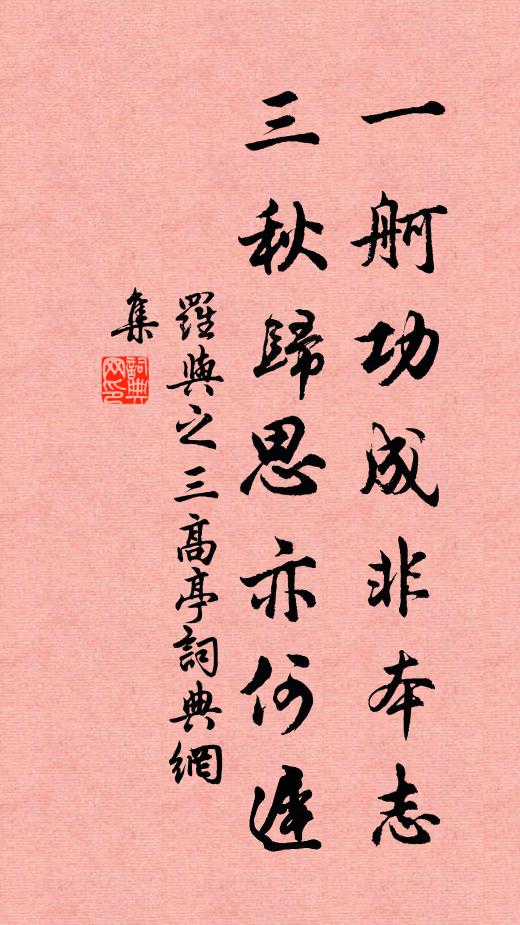 一舸功成非本志
三秋歸思亦何遲
羅與之三高亭詞典網
集
詞典
网印